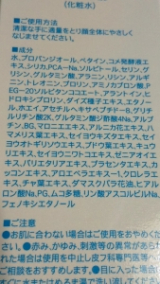 (化粧水)
■ご使用方法
清潔な手に適量をとり顔全体にやさしく
なじませてください。
■成分
水、プロパンジオール、ベタイン、コメ発酵液エ
キス、シリカ、PCA-Na、ソルビトール、セリン、グリ
シン、グルタミン酸、アラニン、リシン、アルギニ
ン、トレオニン、プロリン、
PEG-20ソルビタンココエート、アラントイン、ヒ
ドロキシプロリン、ダイズ種子エキス、
ル、ホエイ、アセチルヘキサペプチド-8、グリチ
ルリチン酸2K、グルタミン酸、アルブ
チン、BG、マロニエエキス、アルニカ花エキス、ハ
マメリス葉エキス、セイヨウキズタエキス、セイ
ヨウオトギリソウエキス、ブドウ葉エキス、キュウ
リエキス、セイヨウニワトコエキス、ゼニアオイエ
キス、パリエタリアエキス、プラセンタエキス、
カッコンエキス、アロエベラエキス-1、クロレラエ
キス、チャ葉エキス、ダマスクバラ花油、ヒアル
ロン酸Na、PG、ムコ多糖、リン酸アスコルビルNa、
フェノキシエタノール
■ご注意
●お肌に合わない場合はご使用をおやめくださ
い。●赤み、かゆみ、刺激等の異常があらわれ
た場合は使用を中止し皮フ科専門医等へ
ご相談をおすすめします。●目に入った場合は